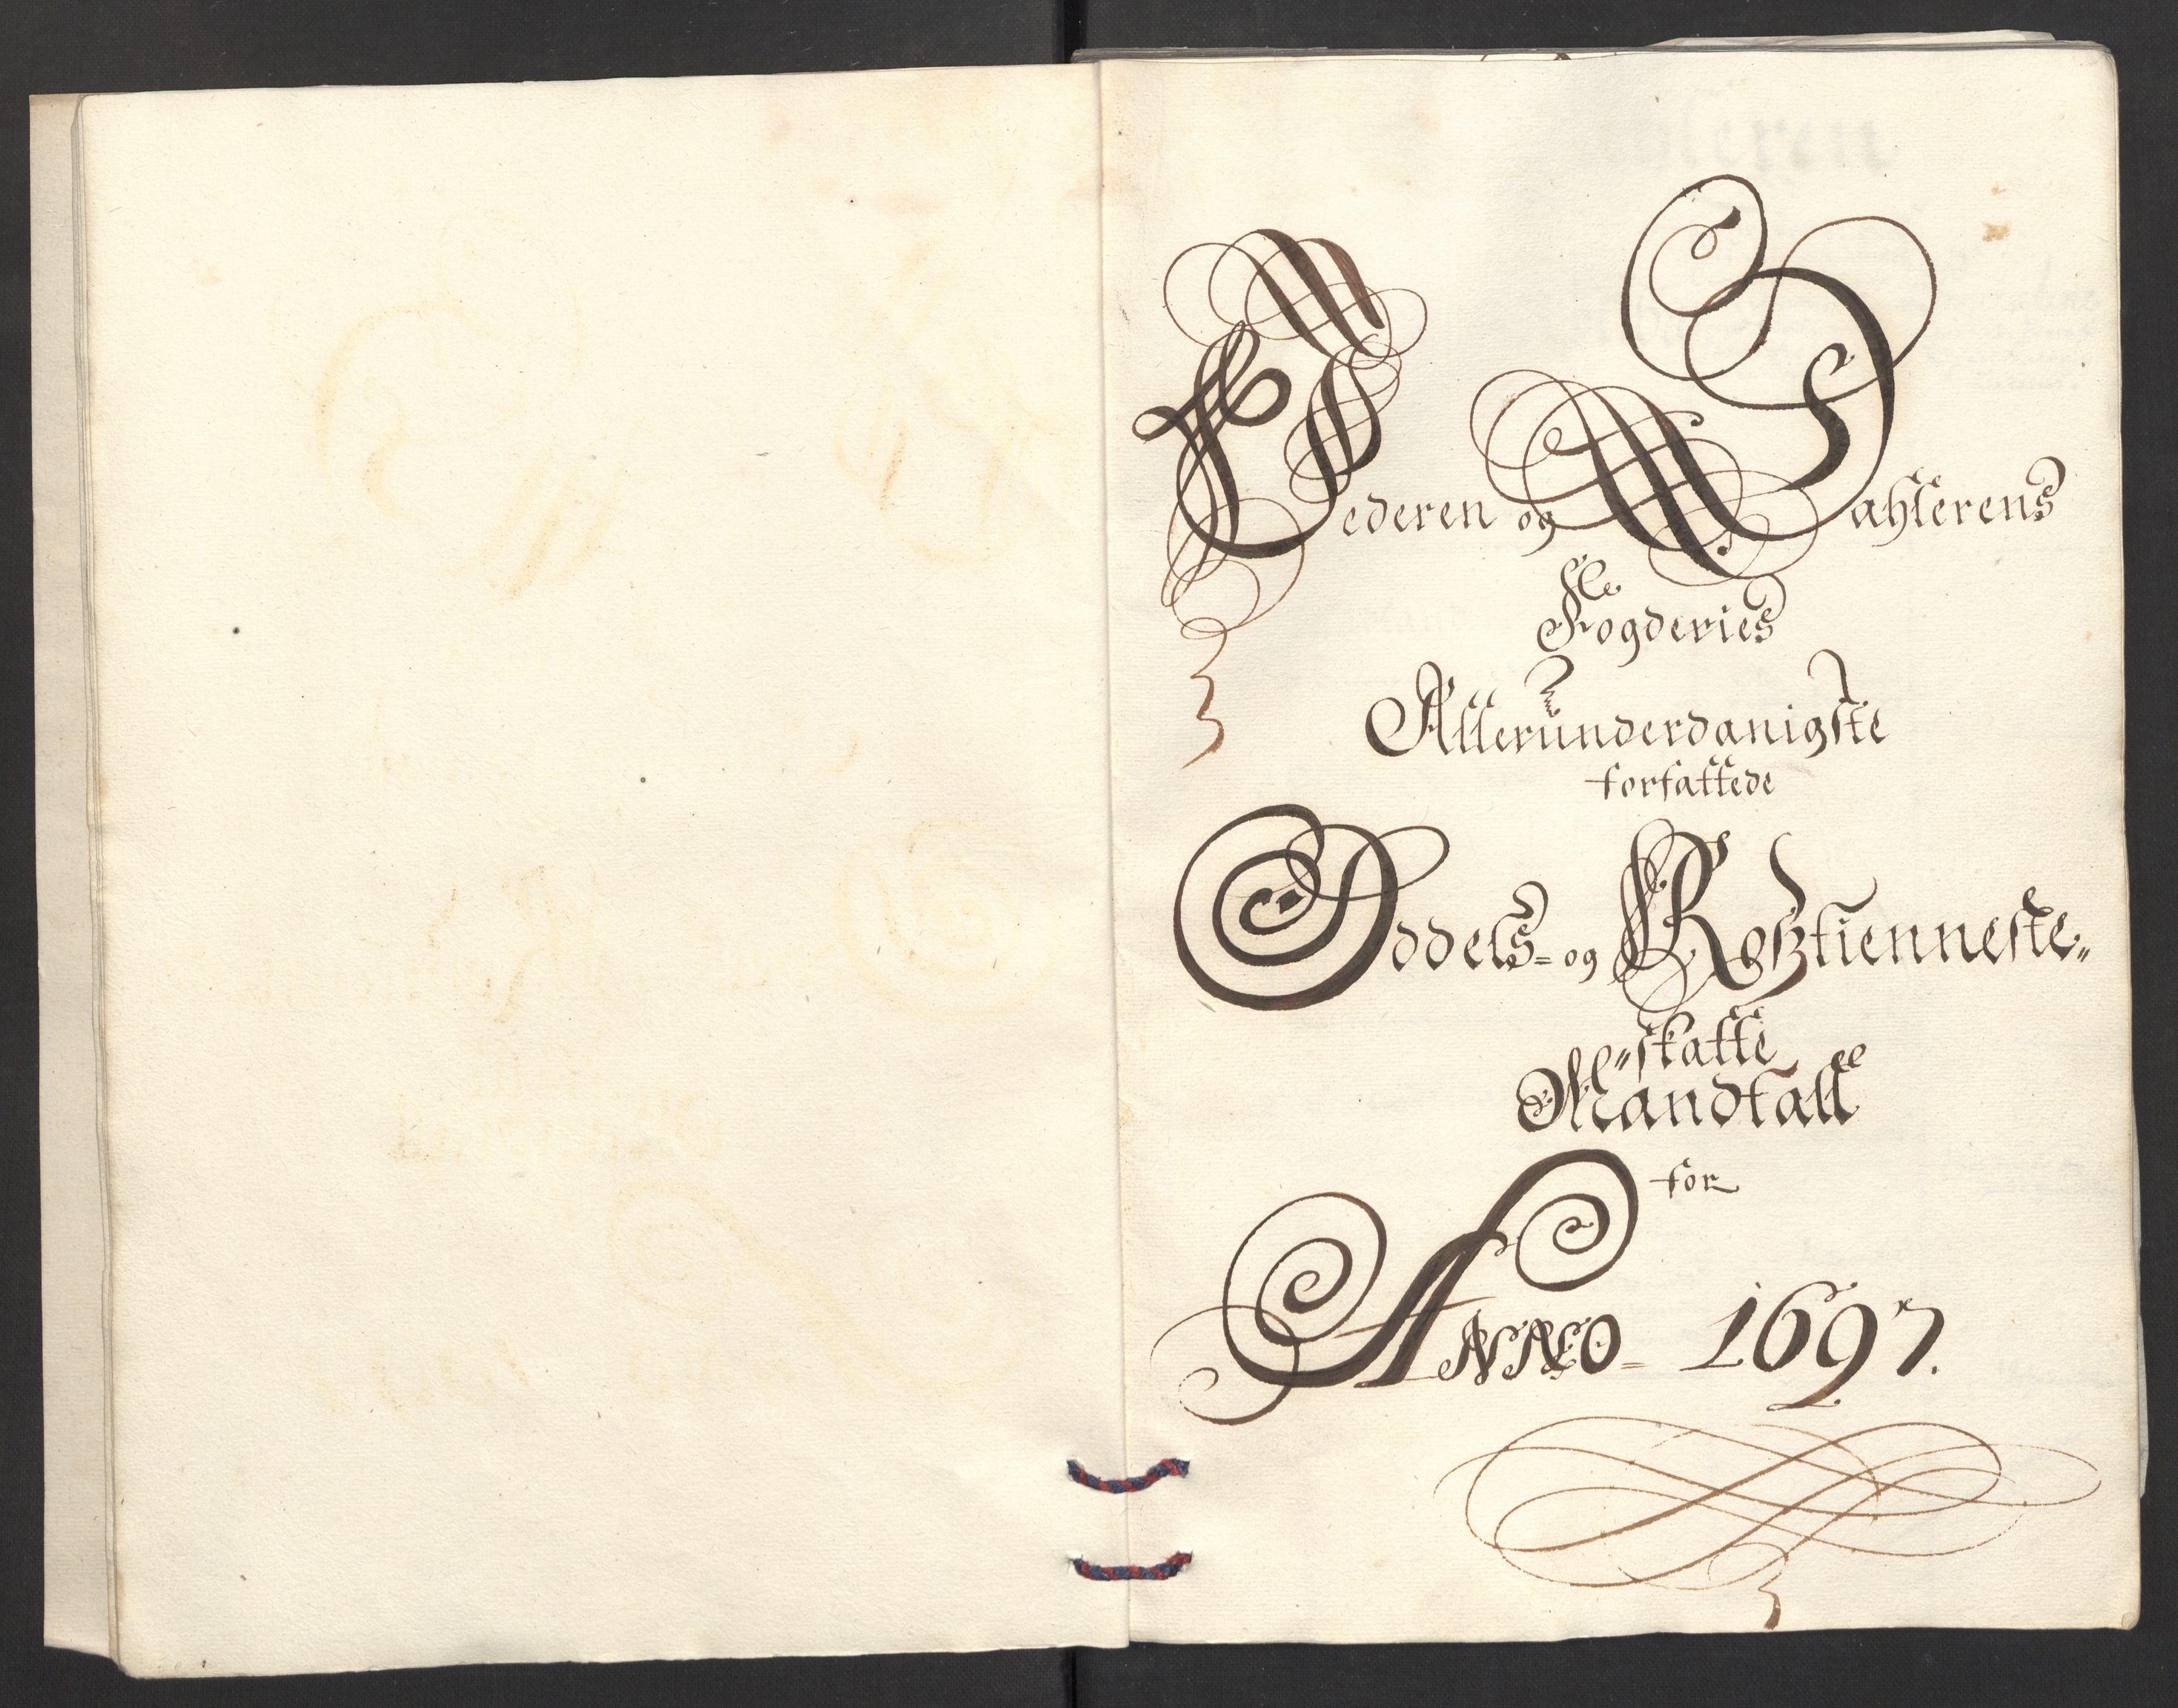 Jederen og Dahlerens
Fogderies
Allerunderdanigste
forfattede
Oddels= og Roßtienneste„
„skatte
Mandtall
for
ANNO= 1697.